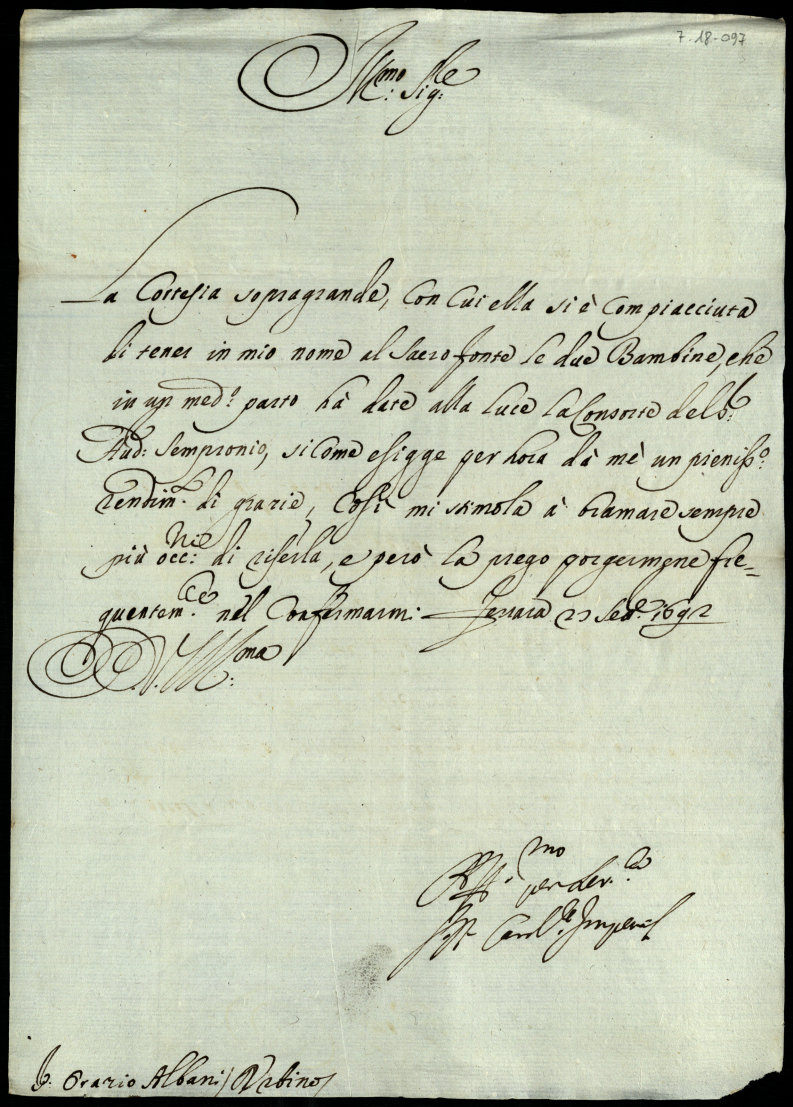 7-18-097
Ill.mo Sig.re
La Cortesia sopragrande, con cui ella si è compiacciuta
di tener in mio nome al Sacro fonte le due Bambine, che
in un med.o parto hà date alla luce la Consorte del S.r
Aud: Sempronio, si come esigge per hora dà mè un pieniss.o
rendim.to di grazie, così mi stimola à bramare sempre
più occ.ni di riferla, e però la prego porgermene fre=
quentem.te nel Confermarmi. Ferrara 23 Sett.e 1692
D. V. Ill.ma
Aff.mo per Ser.la
Card.le Imperiali
S. Orazio Albani / Urbino /